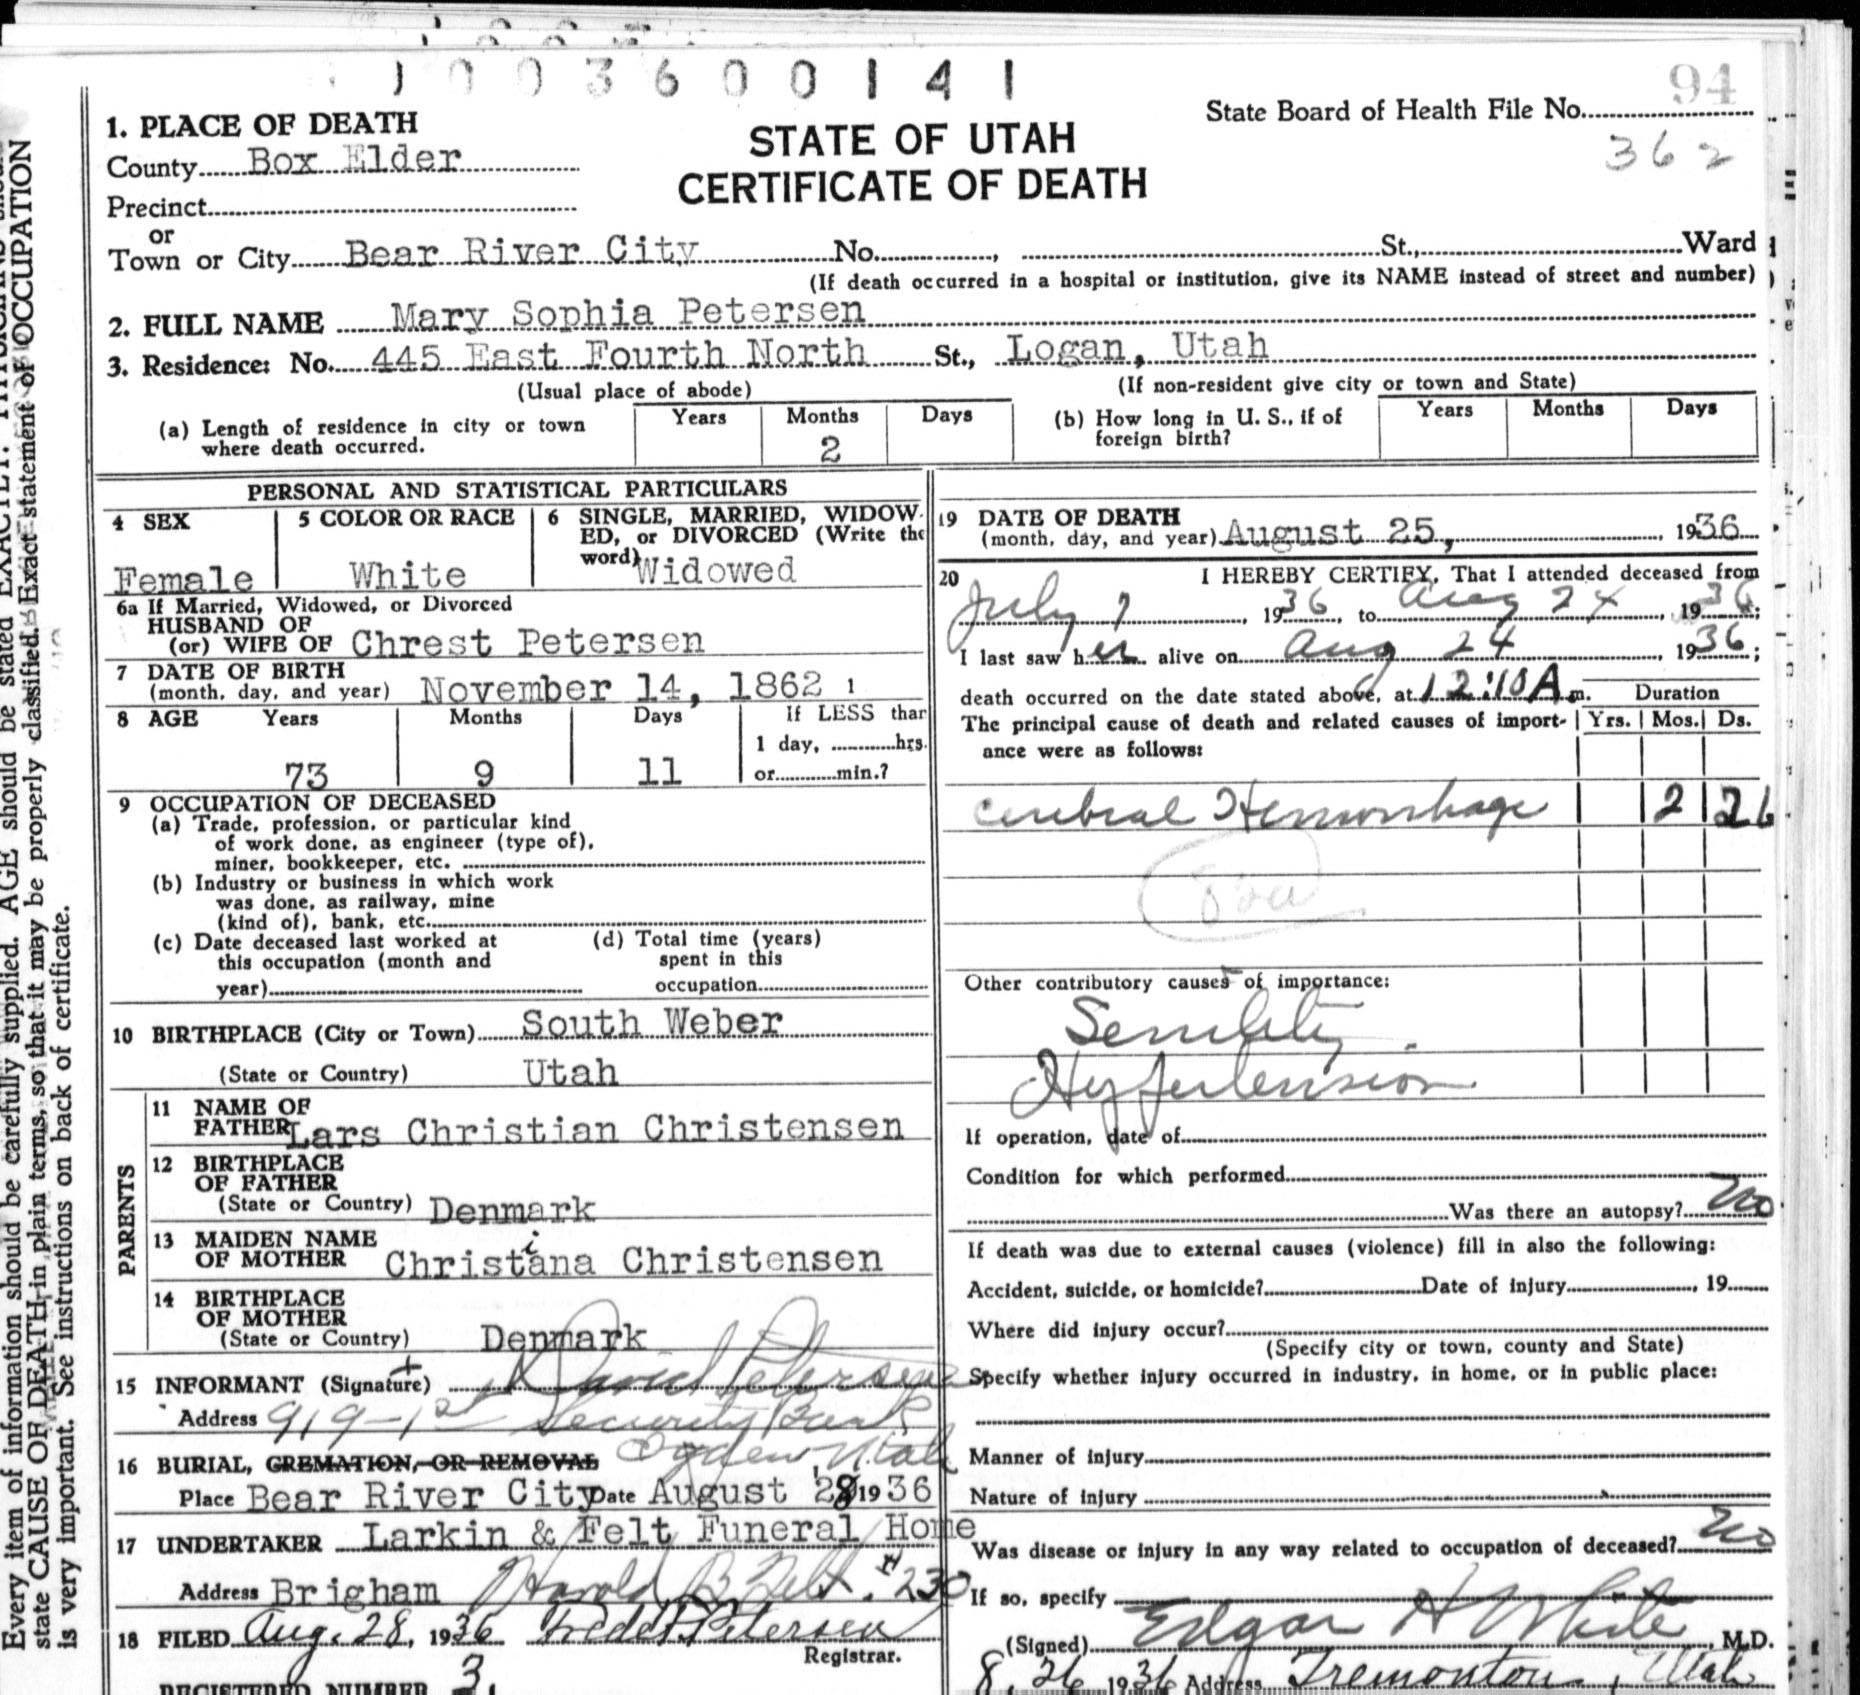 1003600141
94
State Board of Health File No.
362
1. PLACE OF DEATH
STATE OF UTAH
CERTIFICATE OF DEATH
County Box Elder
Precinct
or
Town or City Bear River City No. , St., Ward
(If death occurred in a hospital or institution, give its NAME instead of street and number)
2. FULL NAME Mary Sophia Petersen
3. Residence: No. 445 East Fourth North St., Logan, Utah
(Usual place of abode) (If non-resident give city or town and State)
(a) Length of residence in city or town where death occurred. Years Months 2 Days
(b) How long in U. S., if of foreign birth? Years Months Days
PERSONAL AND STATISTICAL PARTICULARS
4 SEX Female
5 COLOR OR RACE White
6 SINGLE, MARRIED, WIDOWED, or DIVORCED (Write the word) Widowed
6a If Married, Widowed, or Divorced
HUSBAND OF
(or) WIFE OF Chrest Petersen
7 DATE OF BIRTH
(month, day, and year) November 14, 1862 1
8 AGE Years Months Days If LESS than
1 day, hrs.
73 9 11 or min.?
9 OCCUPATION OF DECEASED
(a) Trade, profession, or particular kind
of work done, as engineer (type of),
miner, bookkeeper, etc.
(b) Industry or business in which work
was done, as railway, mine
(kind of), bank, etc.
(c) Date deceased last worked at
this occupation (month and
year)
(d) Total time (years)
spent in this
occupation
10 BIRTHPLACE (City or Town) South Weber
(State or Country) Utah
PARENTS
11 NAME OF
FATHER Lars Christian Christensen
12 BIRTHPLACE
OF FATHER
(State or Country) Denmark
13 MAIDEN NAME
OF MOTHER Christiana Christensen
14 BIRTHPLACE
OF MOTHER
(State or Country) Denmark
15 INFORMANT (Signature) + David Petersen
Address 919-1st Security Bank
Ogden Utah
16 BURIAL, CREMATION, OR REMOVAL
Place Bear River City Date August 28, 1936
17 UNDERTAKER Larkin & Felt Funeral Home
Address Brigham Harold B Felt #230
18 FILED Aug. 28, 1936 Petersen
Registrar.
REGISTERED NUMBER 3.
19 DATE OF DEATH
(month, day, and year) August 25, , 1936
20 I HEREBY CERTIFY, That I attended deceased from
July 1, 1936, to Aug 24, 1936;
I last saw her alive on Aug 24, 1936;
death occurred on the date stated above, at 12:10 A m.
Duration
The principal cause of death and related causes of import- Yrs. Mos. Ds.
ance were as follows:
cerebral Hemorrhage 2 26
Other contributory causes of importance:
Senility
Hypertension
If operation, date of
Condition for which performed
Was there an autopsy? no
If death was due to external causes (violence) fill in also the following:
Accident, suicide, or homicide? Date of injury , 19
Where did injury occur?
(Specify city or town, county and State)
Specify whether injury occurred in industry, in home, or in public place:
Manner of injury
Nature of injury
Was disease or injury in any way related to occupation of deceased? no
If so, specify
(Signed) Edgar H White, M.D.
8, 26 1936 Address Tremonton, Utah
Every item of information should be carefully supplied. AGE should be stated EXACTLY.
state CAUSE OF DEATH in plain terms, so that it may be properly classified. Exact statement of OCCUPATION
is very important. See instructions on back of certificate.